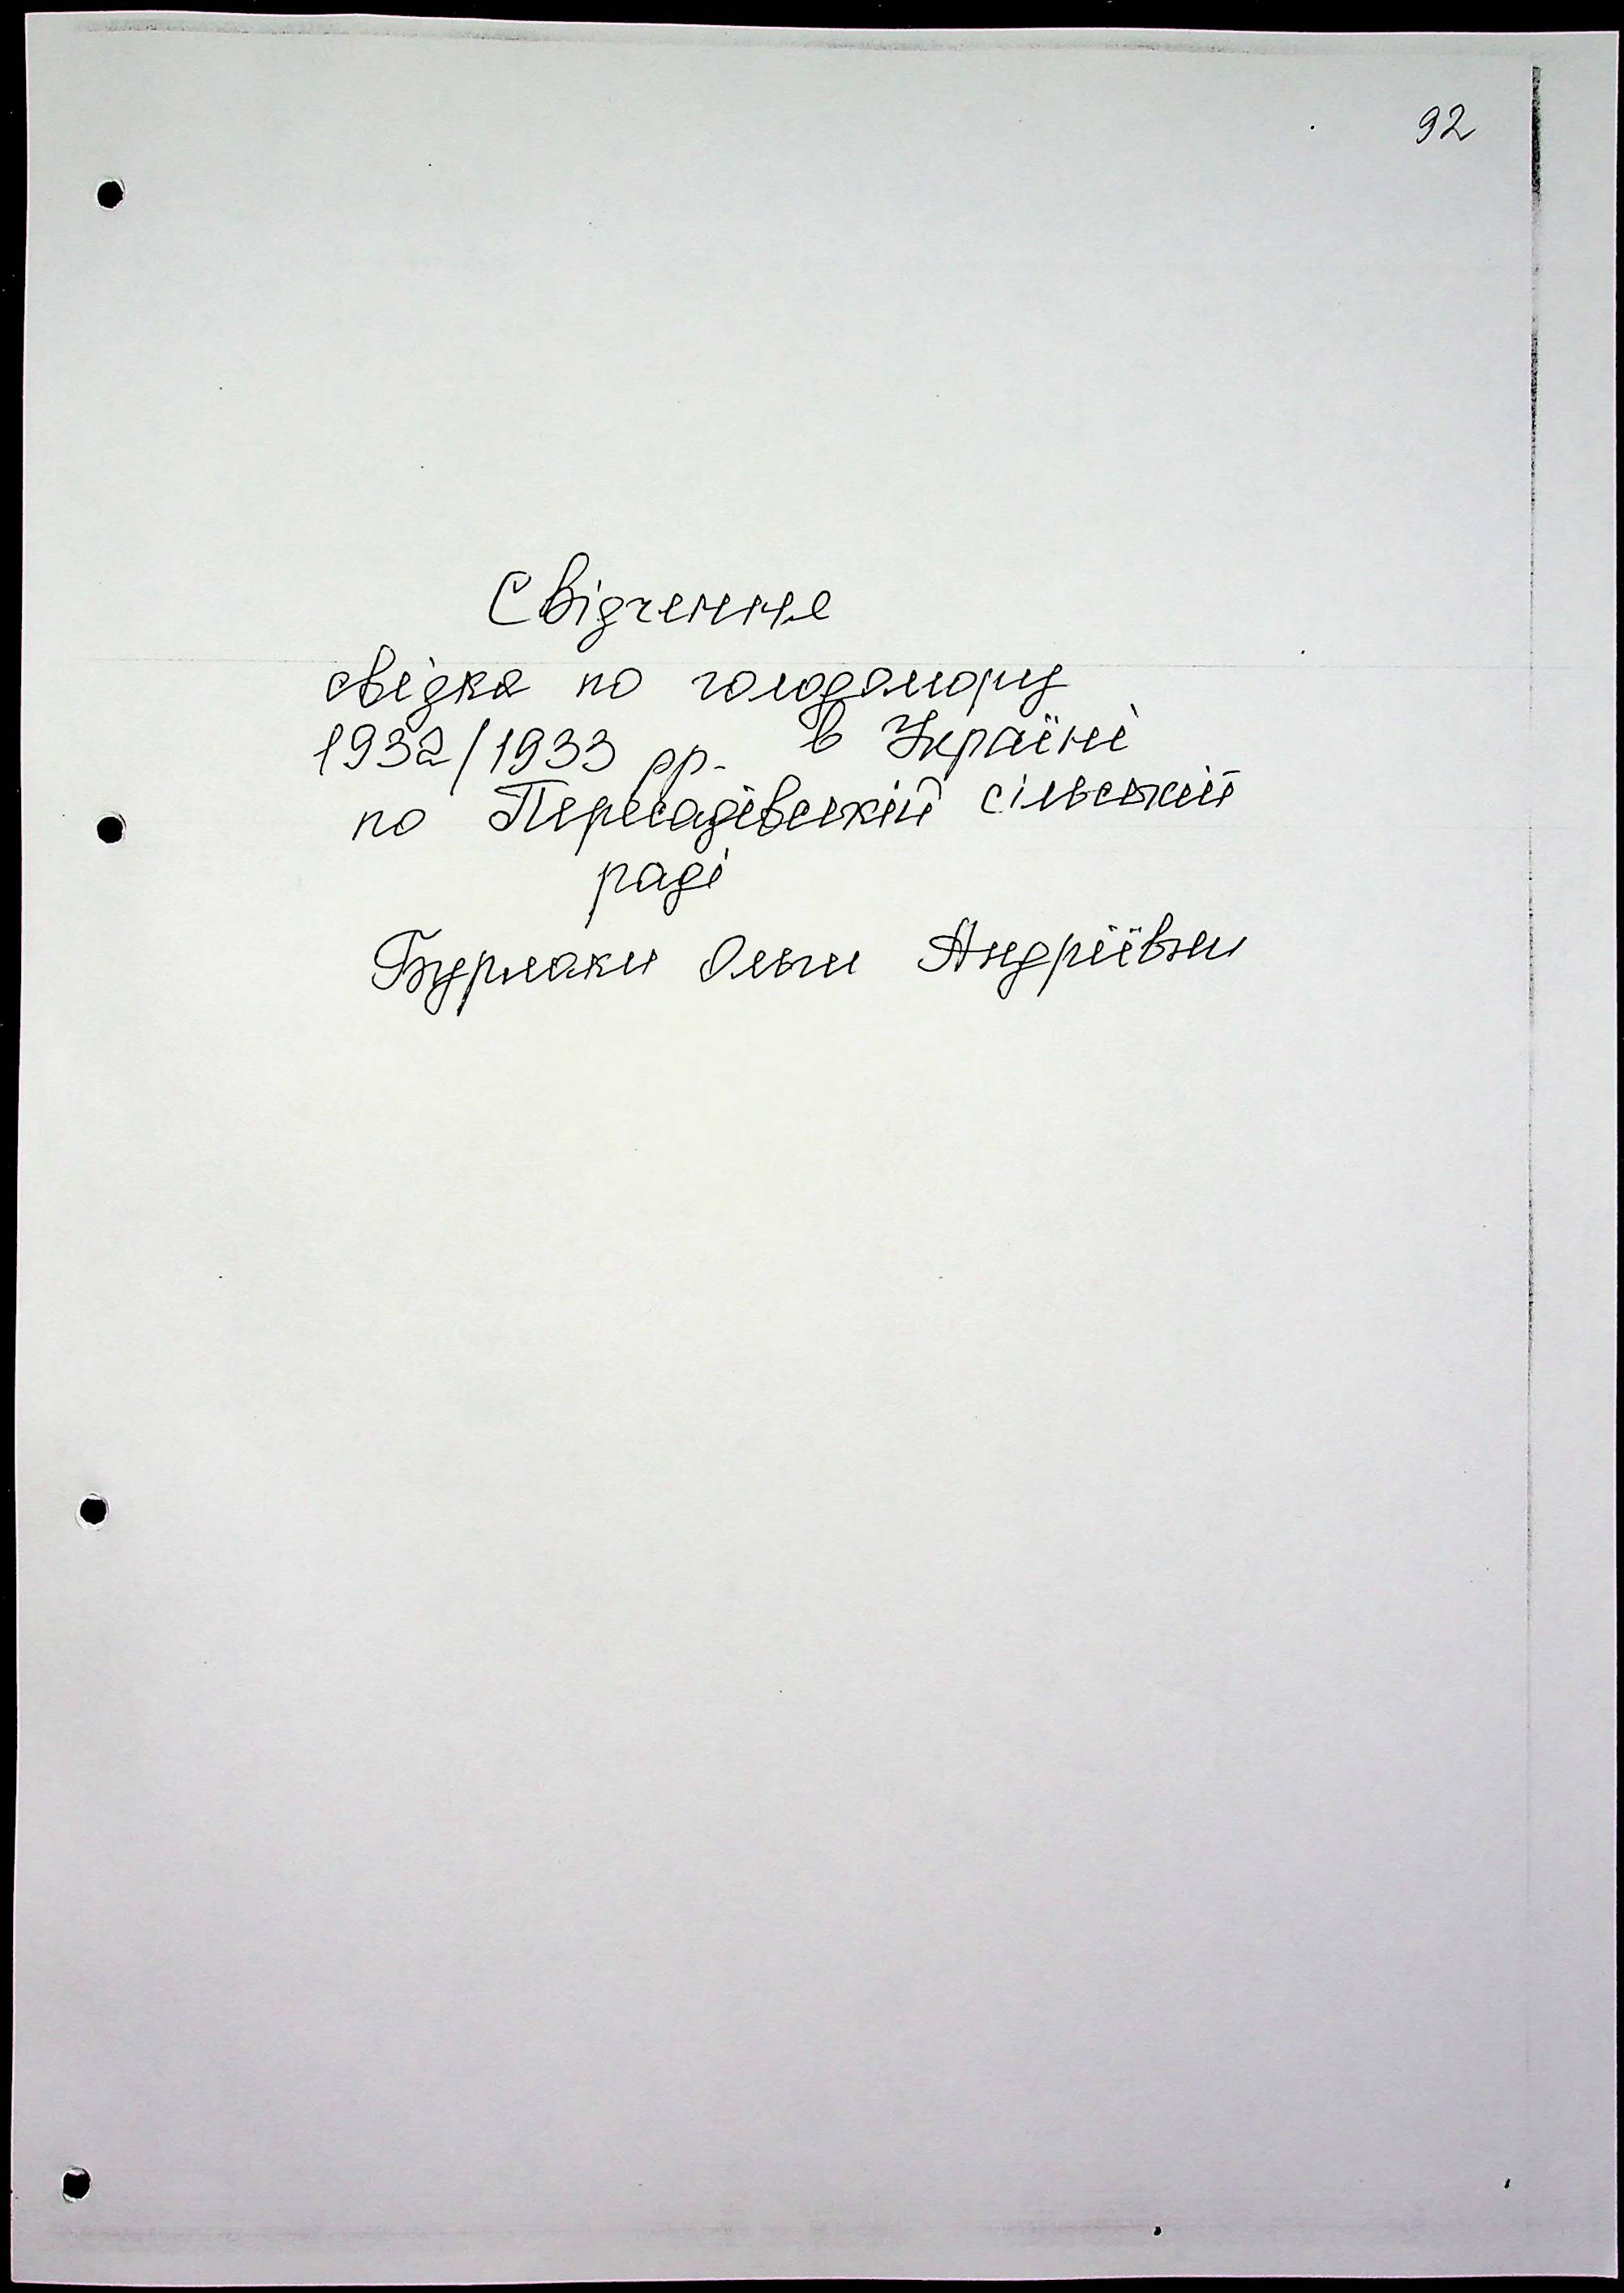 92
Свідчення
свідка по голодомору
1932/1933 рр. в Україні
по Пересадівській сільській
раді
Бурлаки Ольги Андріївни